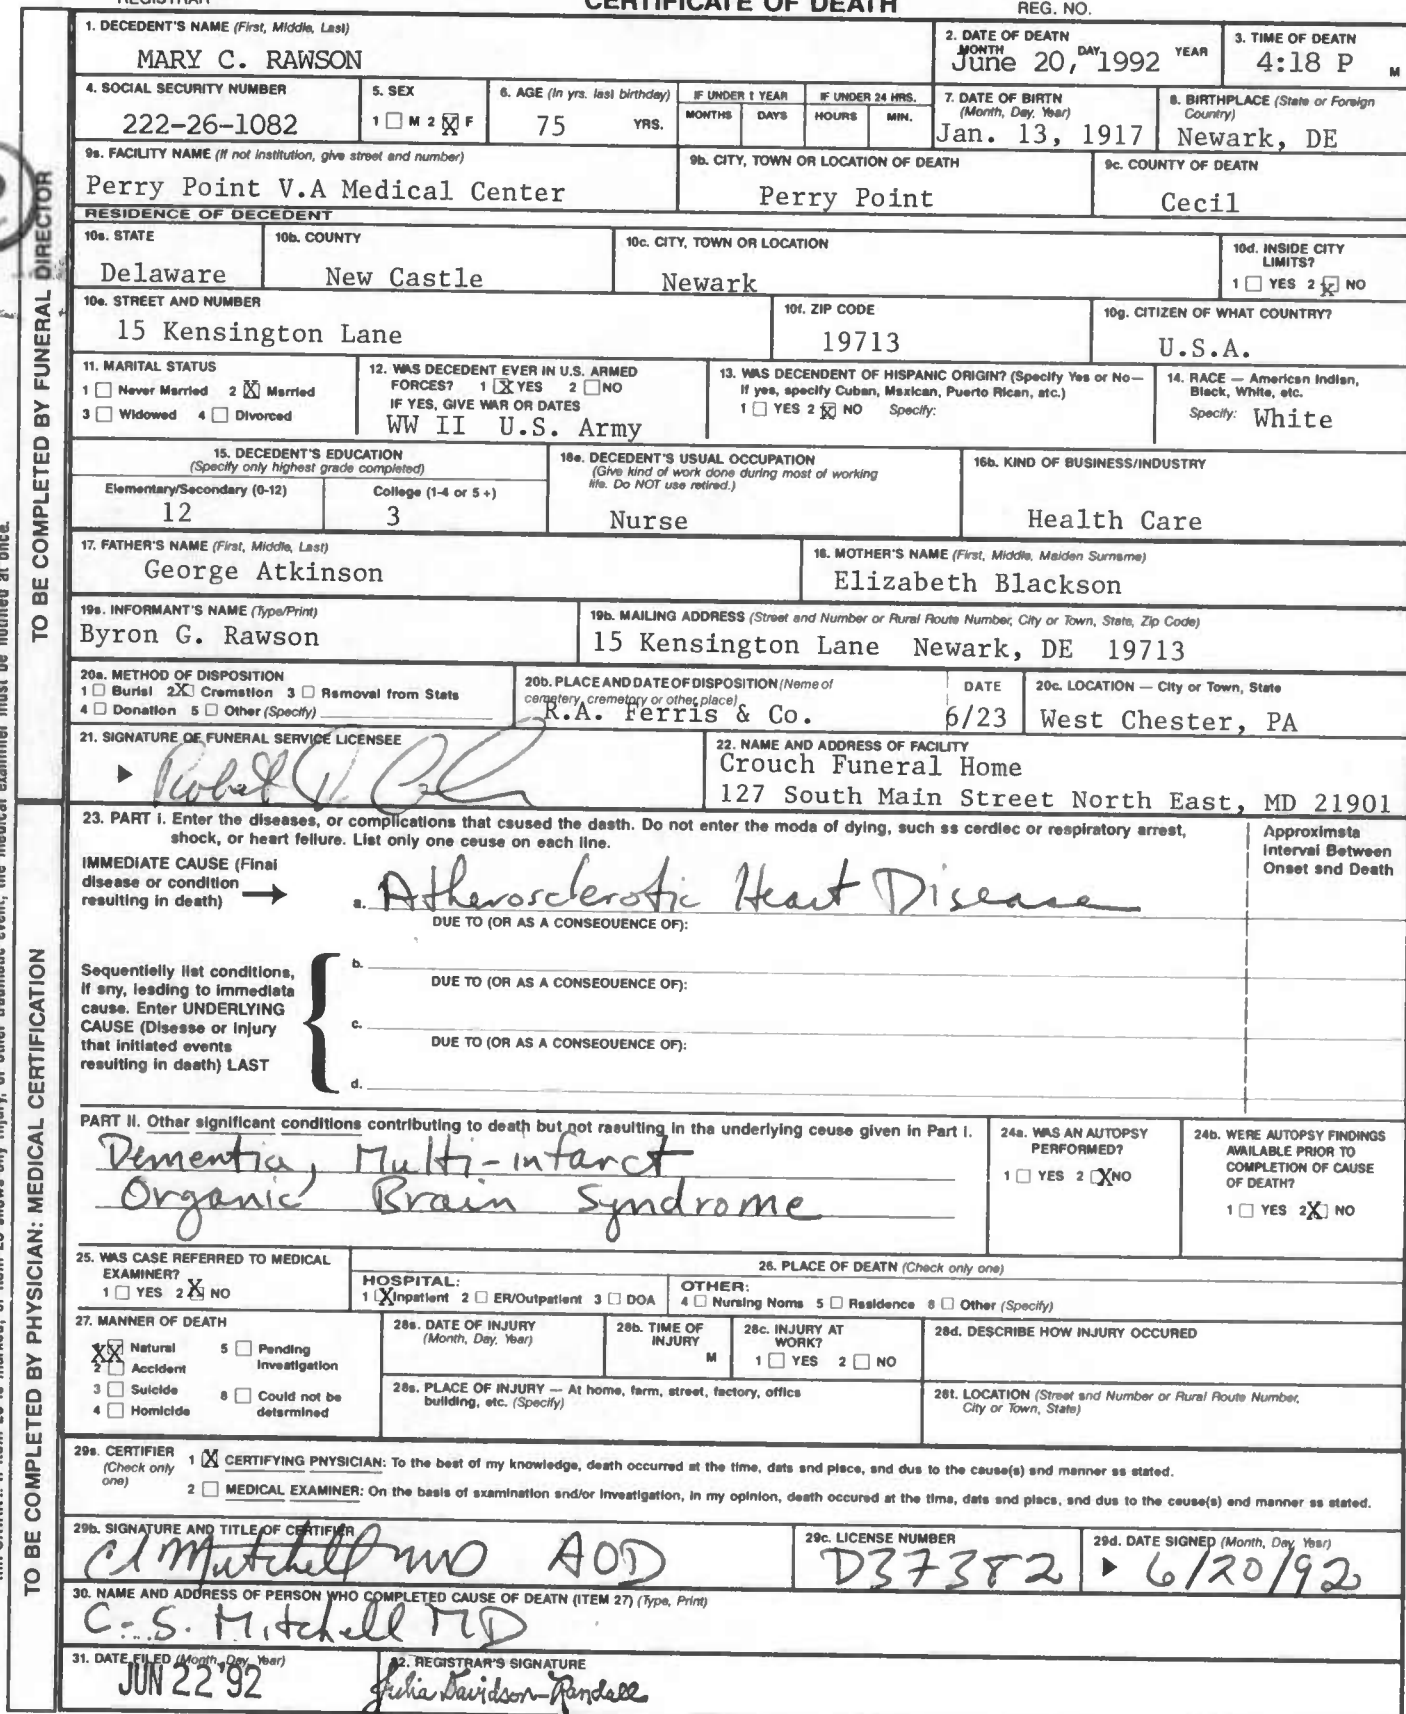 REGISTRAR
CERTIFICATE OF DEATH
REG. NO.
TO BE COMPLETED BY FUNERAL DIRECTOR
1. DECEDENT'S NAME (First, Middle, Last)
MARY C. RAWSON
2. DATE OF DEATH
MONTH DAY YEAR
June 20, 1992
3. TIME OF DEATH
4:18 P M
4. SOCIAL SECURITY NUMBER
222-26-1082
5. SEX
1 ☐ M 2 ☒ F
6. AGE (In yrs. last birthday)
75 YRS.
IF UNDER 1 YEAR
MONTHS DAYS
IF UNDER 24 HRS.
HOURS MIN.
7. DATE OF BIRTH
(Month, Day, Year)
Jan. 13, 1917
8. BIRTHPLACE (State or Foreign
Country)
Newark, DE
9a. FACILITY NAME (If not institution, give street and number)
Perry Point V.A Medical Center
9b. CITY, TOWN OR LOCATION OF DEATH
Perry Point
9c. COUNTY OF DEATH
Cecil
RESIDENCE OF DECEDENT
10a. STATE
Delaware
10b. COUNTY
New Castle
10c. CITY, TOWN OR LOCATION
Newark
10d. INSIDE CITY
LIMITS?
1 ☐ YES 2 ☒ NO
10e. STREET AND NUMBER
15 Kensington Lane
10f. ZIP CODE
19713
10g. CITIZEN OF WHAT COUNTRY?
U.S.A.
11. MARITAL STATUS
1 ☐ Never Married 2 ☒ Married
3 ☐ Widowed 4 ☐ Divorced
12. WAS DECEDENT EVER IN U.S. ARMED
FORCES? 1 ☒ YES 2 ☐ NO
IF YES, GIVE WAR OR DATES
WW II U.S. Army
13. WAS DECENDENT OF HISPANIC ORIGIN? (Specify Yes or No—
If yes, specify Cuban, Mexican, Puerto Rican, etc.)
1 ☐ YES 2 ☒ NO Specify:
14. RACE — American Indian,
Black, White, etc.
Specify: White
15. DECEDENT'S EDUCATION
(Specify only highest grade completed)
Elementary/Secondary (0-12)
12
College (1-4 or 5 +)
3
16a. DECEDENT'S USUAL OCCUPATION
(Give kind of work done during most of working
life. Do NOT use retired.)
Nurse
16b. KIND OF BUSINESS/INDUSTRY
Health Care
17. FATHER'S NAME (First, Middle, Last)
George Atkinson
18. MOTHER'S NAME (First, Middle, Maiden Surname)
Elizabeth Blackson
19a. INFORMANT'S NAME (Type/Print)
Byron G. Rawson
19b. MAILING ADDRESS (Street and Number or Rural Route Number, City or Town, State, Zip Code)
15 Kensington Lane Newark, DE 19713
20a. METHOD OF DISPOSITION
1 ☐ Burial 2 ☒ Cremation 3 ☐ Removal from State
4 ☐ Donation 5 ☐ Other (Specify)
20b. PLACE AND DATE OF DISPOSITION (Name of
cemetery, crematory or other place)
R.A. Ferris & Co.
DATE
6/23
20c. LOCATION — City or Town, State
West Chester, PA
21. SIGNATURE OF FUNERAL SERVICE LICENSEE
22. NAME AND ADDRESS OF FACILITY
Crouch Funeral Home
127 South Main Street North East, MD 21901
TO BE COMPLETED BY PHYSICIAN: MEDICAL CERTIFICATION
23. PART I. Enter the diseases, or complications that caused the death. Do not enter the mode of dying, such as cardiac or respiratory arrest,
shock, or heart failure. List only one cause on each line.
Approximate
Interval Between
Onset and Death
IMMEDIATE CAUSE (Final
disease or condition
resulting in death) →
a. Atherosclerotic Heart Disease
DUE TO (OR AS A CONSEQUENCE OF):
Sequentially list conditions,
if any, leading to immediate
cause. Enter UNDERLYING
CAUSE (Disease or injury
that initiated events
resulting in death) LAST
b.
DUE TO (OR AS A CONSEQUENCE OF):
c.
DUE TO (OR AS A CONSEQUENCE OF):
d.
PART II. Other significant conditions contributing to death but not resulting in the underlying cause given in Part I.
Dementia, Multi-infarct
Organic Brain Syndrome
24a. WAS AN AUTOPSY
PERFORMED?
1 ☐ YES 2 ☒ NO
24b. WERE AUTOPSY FINDINGS
AVAILABLE PRIOR TO
COMPLETION OF CAUSE
OF DEATH?
1 ☐ YES 2 ☒ NO
25. WAS CASE REFERRED TO MEDICAL
EXAMINER?
1 ☐ YES 2 ☒ NO
26. PLACE OF DEATH (Check only one)
HOSPITAL:
1 ☒ Inpatient 2 ☐ ER/Outpatient 3 ☐ DOA
OTHER:
4 ☐ Nursing Home 5 ☐ Residence 6 ☐ Other (Specify)
27. MANNER OF DEATH
1 ☒ Natural
2 ☐ Accident
3 ☐ Suicide
4 ☐ Homicide
5 ☐ Pending
Investigation
6 ☐ Could not be
determined
28a. DATE OF INJURY
(Month, Day, Year)
28b. TIME OF
INJURY
M
28c. INJURY AT
WORK?
1 ☐ YES 2 ☐ NO
28d. DESCRIBE HOW INJURY OCCURED
28e. PLACE OF INJURY — At home, farm, street, factory, office
building, etc. (Specify)
28f. LOCATION (Street and Number or Rural Route Number,
City or Town, State)
29a. CERTIFIER
(Check only
one)
1 ☒ CERTIFYING PHYSICIAN: To the best of my knowledge, death occurred at the time, date and place, and due to the cause(s) and manner as stated.
2 ☐ MEDICAL EXAMINER: On the basis of examination and/or investigation, in my opinion, death occured at the time, date and place, and due to the cause(s) and manner as stated.
29b. SIGNATURE AND TITLE OF CERTIFIER
CS Mitchell MD AOD
29c. LICENSE NUMBER
D37382
29d. DATE SIGNED (Month, Day, Year)
6/20/92
30. NAME AND ADDRESS OF PERSON WHO COMPLETED CAUSE OF DEATH (ITEM 27) (Type, Print)
C. S. Mitchell MD
31. DATE FILED (Month, Day, Year)
JUN 22 '92
32. REGISTRAR'S SIGNATURE
Julia Davidson-Randall